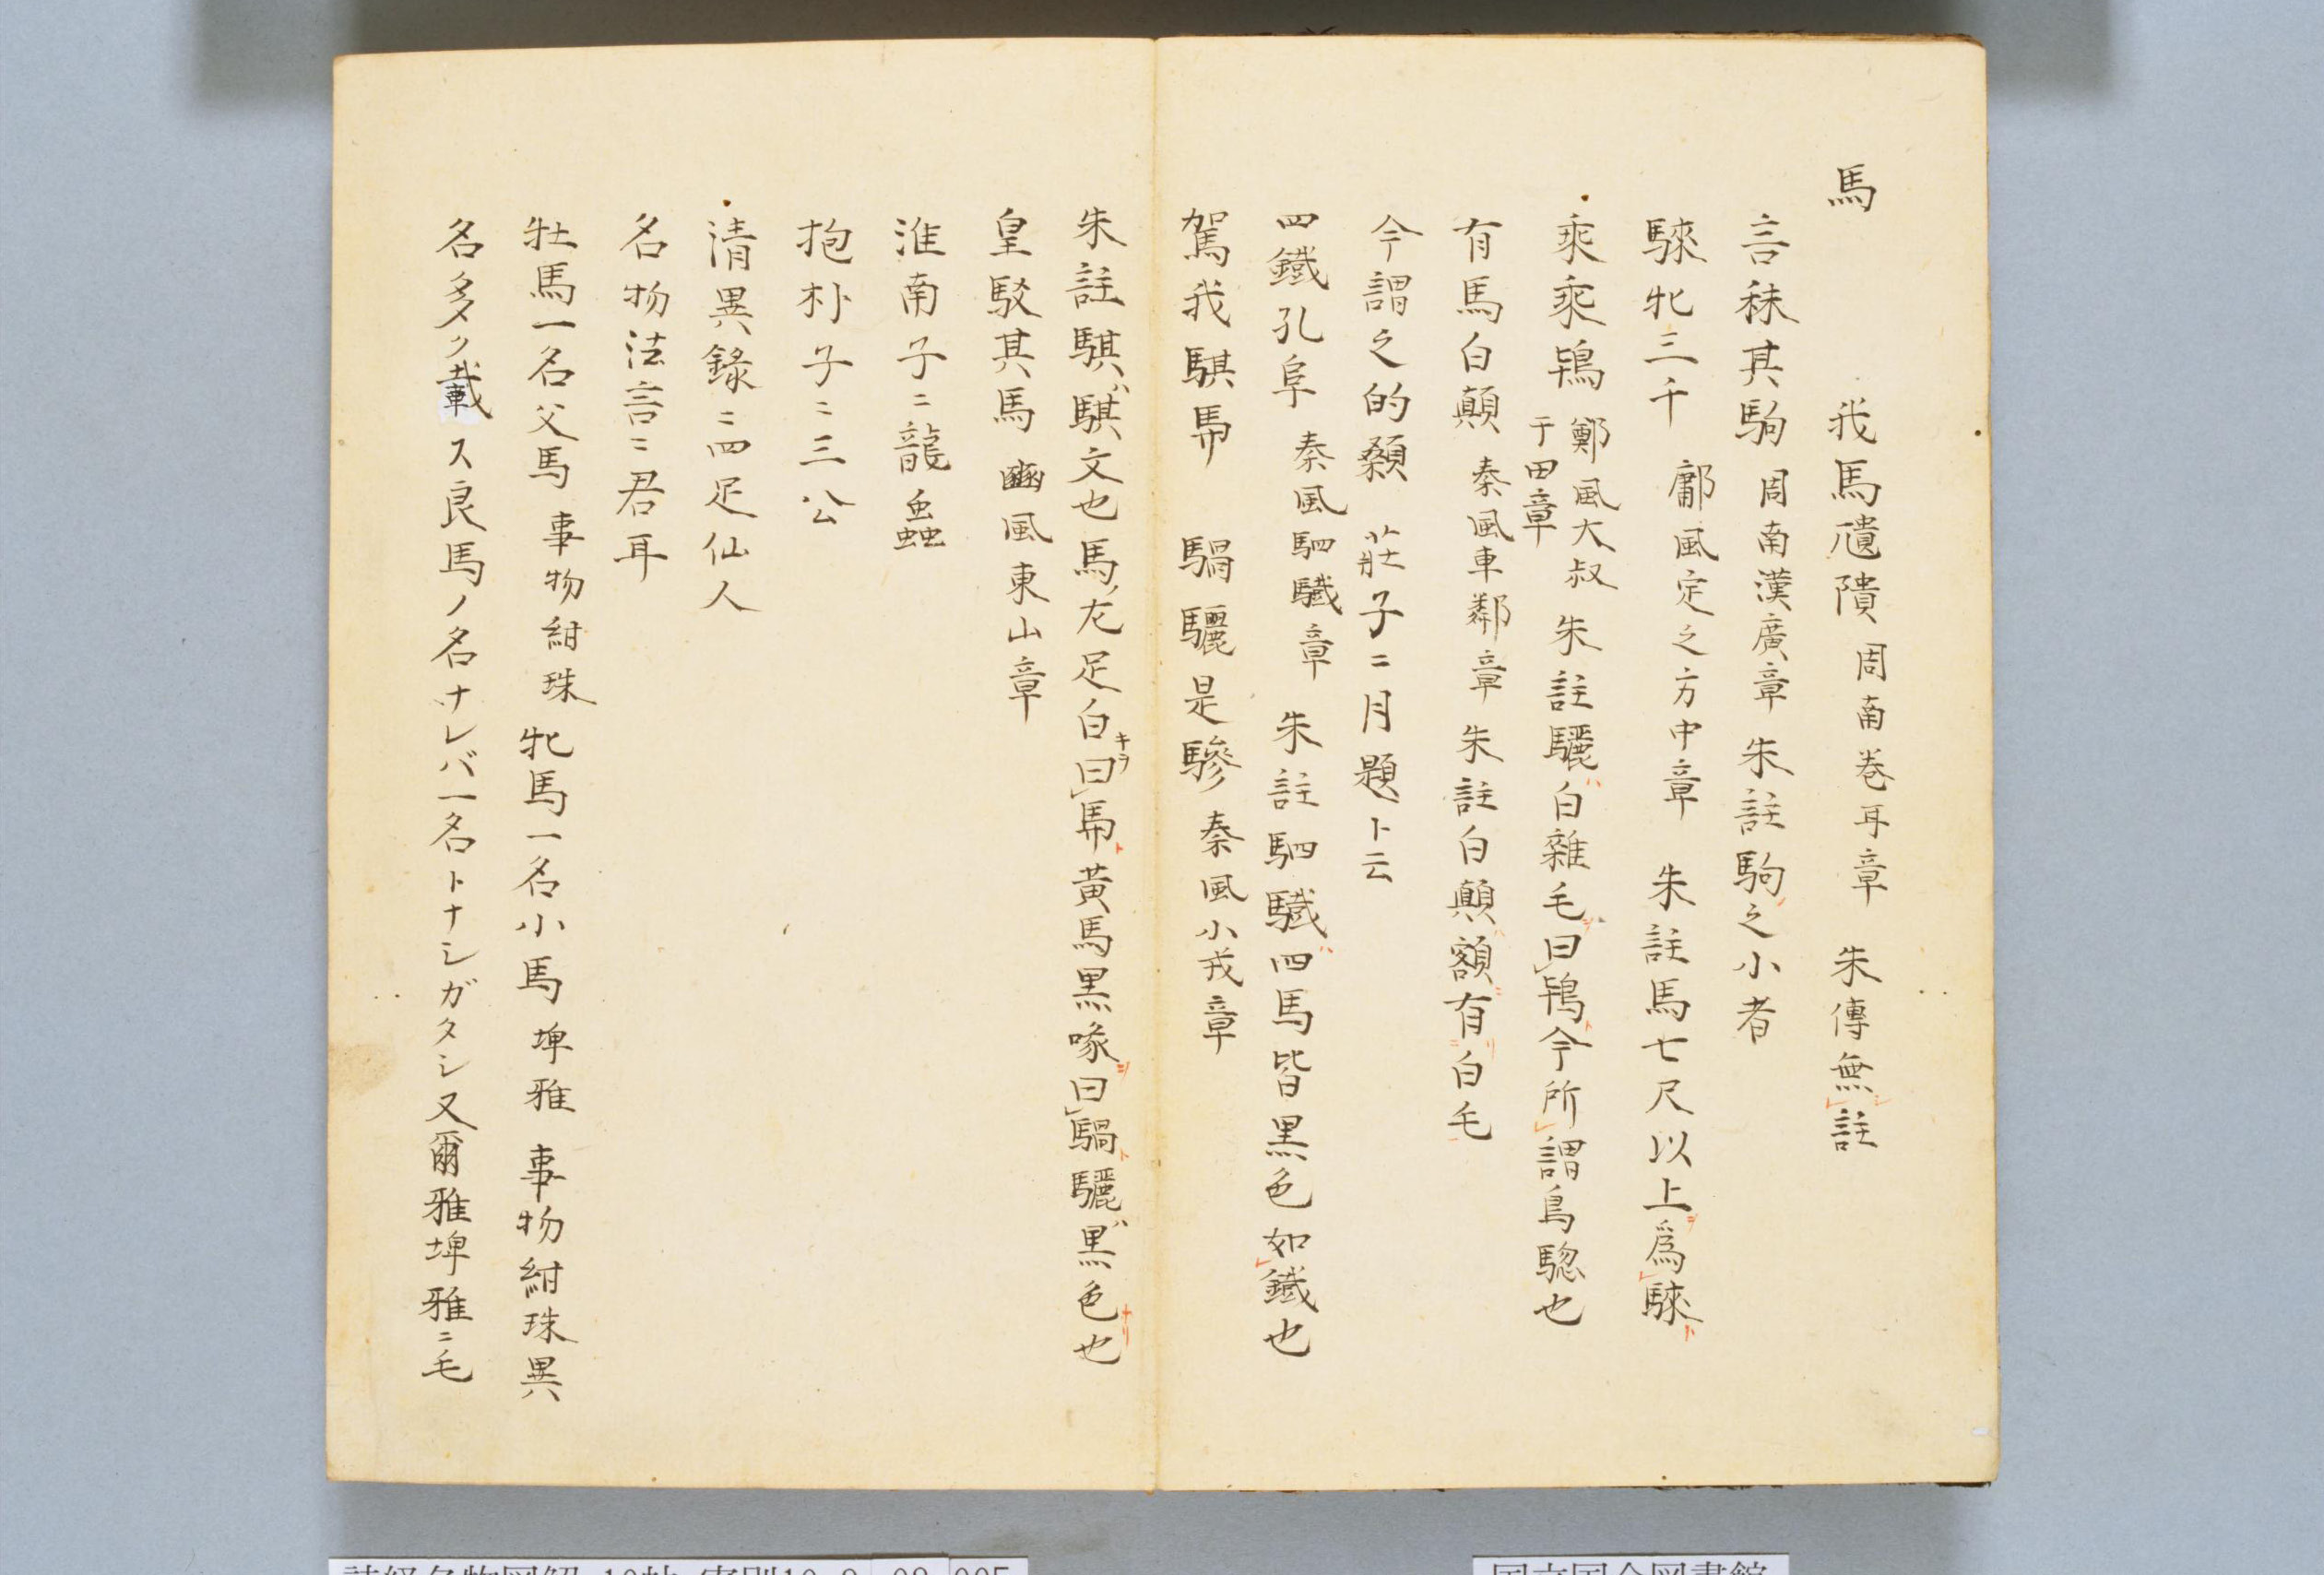 馬　我馬虺隤　周南巻耳章　朱傳無註
言秣其駒　周南漢廣章　朱註駒之小者
騋牝三千　鄘風定之方中章　朱註馬七尺以上爲騋ト
乘乘鴇　鄭風大叔于田章　朱註驪ハ白雜毛曰鴇ト今所謂烏騘也
有馬白顛　秦風車鄰章　朱註白顛ハ額ニ有リ白毛
今謂之的顙　莊子ニ月題ト云
四鐵孔阜　秦風駟驖章　朱註駟驖ハ四馬皆黒色如鐵也
駕我騏馵　騧驪是驂　秦風小戎章
朱註騏ハ騏文也馬ノ左足白キヲ曰馵ト黄馬黒喙曰騧ト驪ハ黒色也ナリ
皇駁其馬　豳風東山章
淮南子ニ龍蟲
抱朴子ニ三公
清異錄ニ四足仙人
名物法言ニ君耳
牡馬一名父馬　事物紺珠　牝馬一名小馬　埤雅　事物紺珠異
名多ク載ス良馬ノ名ナレバ一名トナシガタシ又爾雅埤雅ニ毛